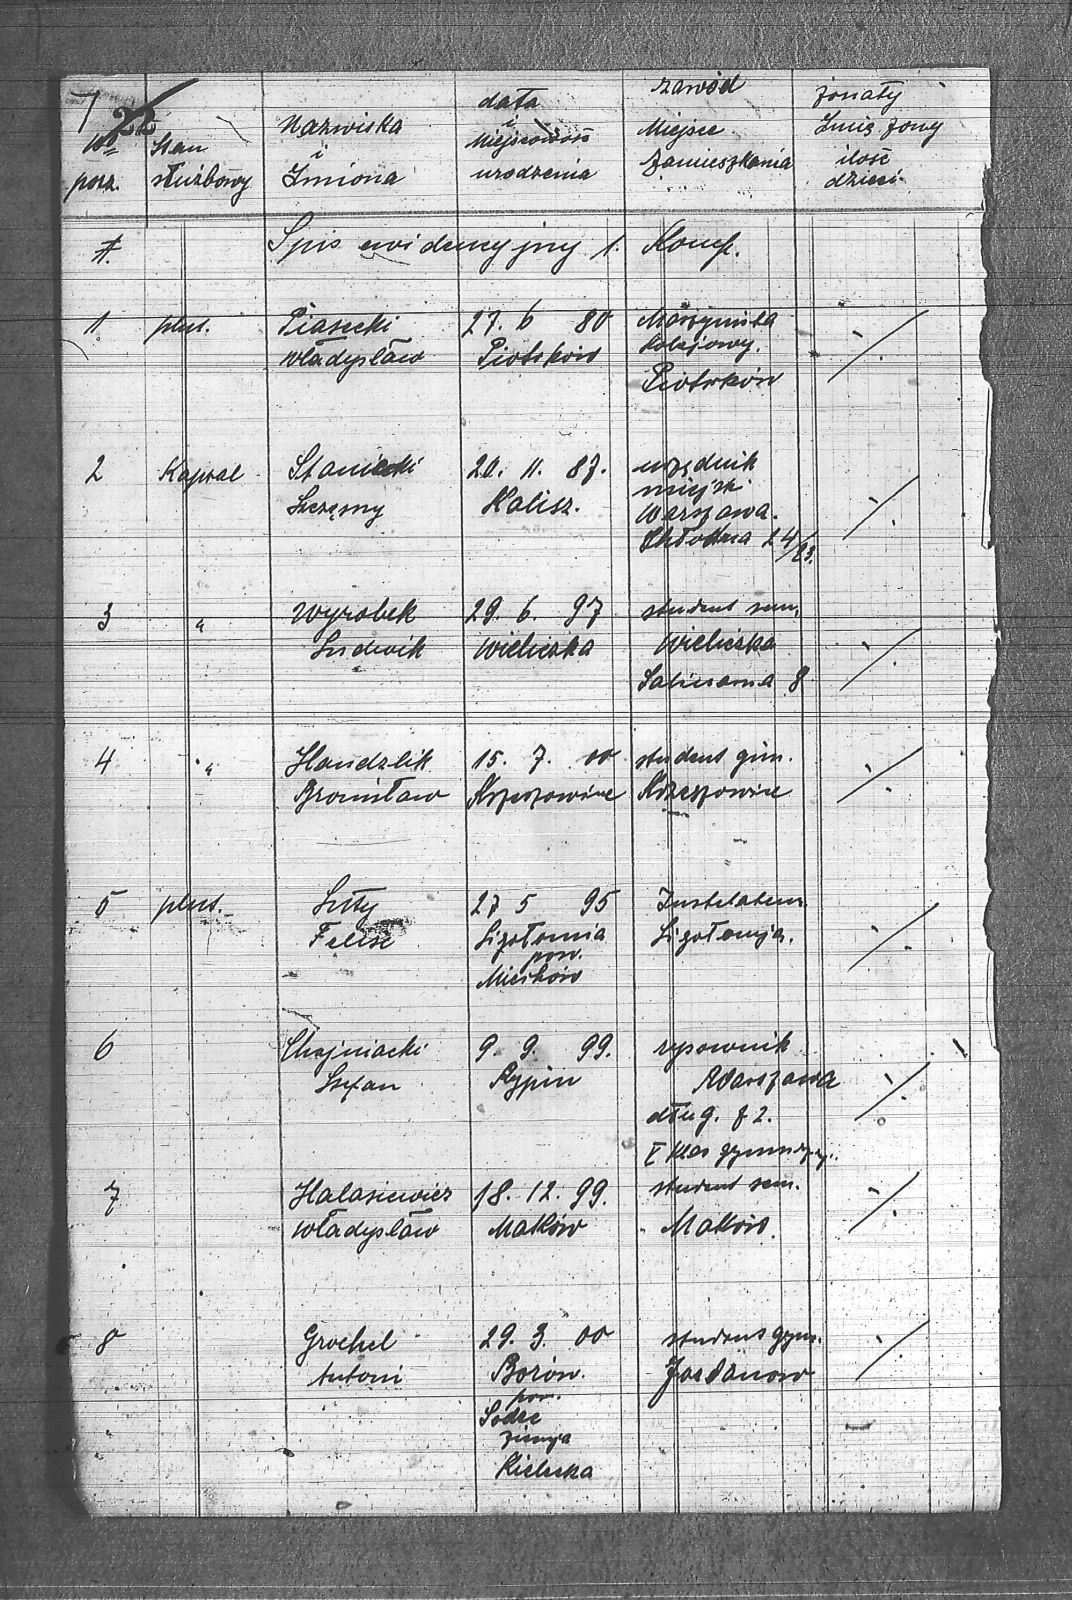 7 22
No porz.
Stan służbowy
Nazwiska i Imiona
data i Miejscowość urodzenia
zawód Miejsce Zamieszkania
żonaty Imię żony ilość dzieci
Spis ewidencyjny 1. Komp.
1 plut. Piasecki 27. 6 80 Maszynista
Władysław Piotrków kolejowy.
Piotrków
2 Kapral Staniecki 20. 11. 87. urzędnik
Szczęsny Kalisz. miejski
Warszawa.
Chłodna 24/23.
3 " Wyrobek 29. 6. 97 student sem.
Ludwik Wieliczka Wieliczka
Salinarna 8
4 " Handzlik 15. 7. 00 student gim.
Bronisław Krzeszowice Krzeszowice
5 plut. 27 5 95
Feliks
pow.
Miechów
6 Chojniacki 9. 9. 99. rysownik
Stefan Rypin Warszawa
dług. 72.
V klas
7 Halasiewicz 18. 12. 99. student sem.
Władysław Maków Maków.
8 Grochel 29. 3. 00 student gym.
Antoni Borów. Jordanów
pow.
ziemia
Kielecka